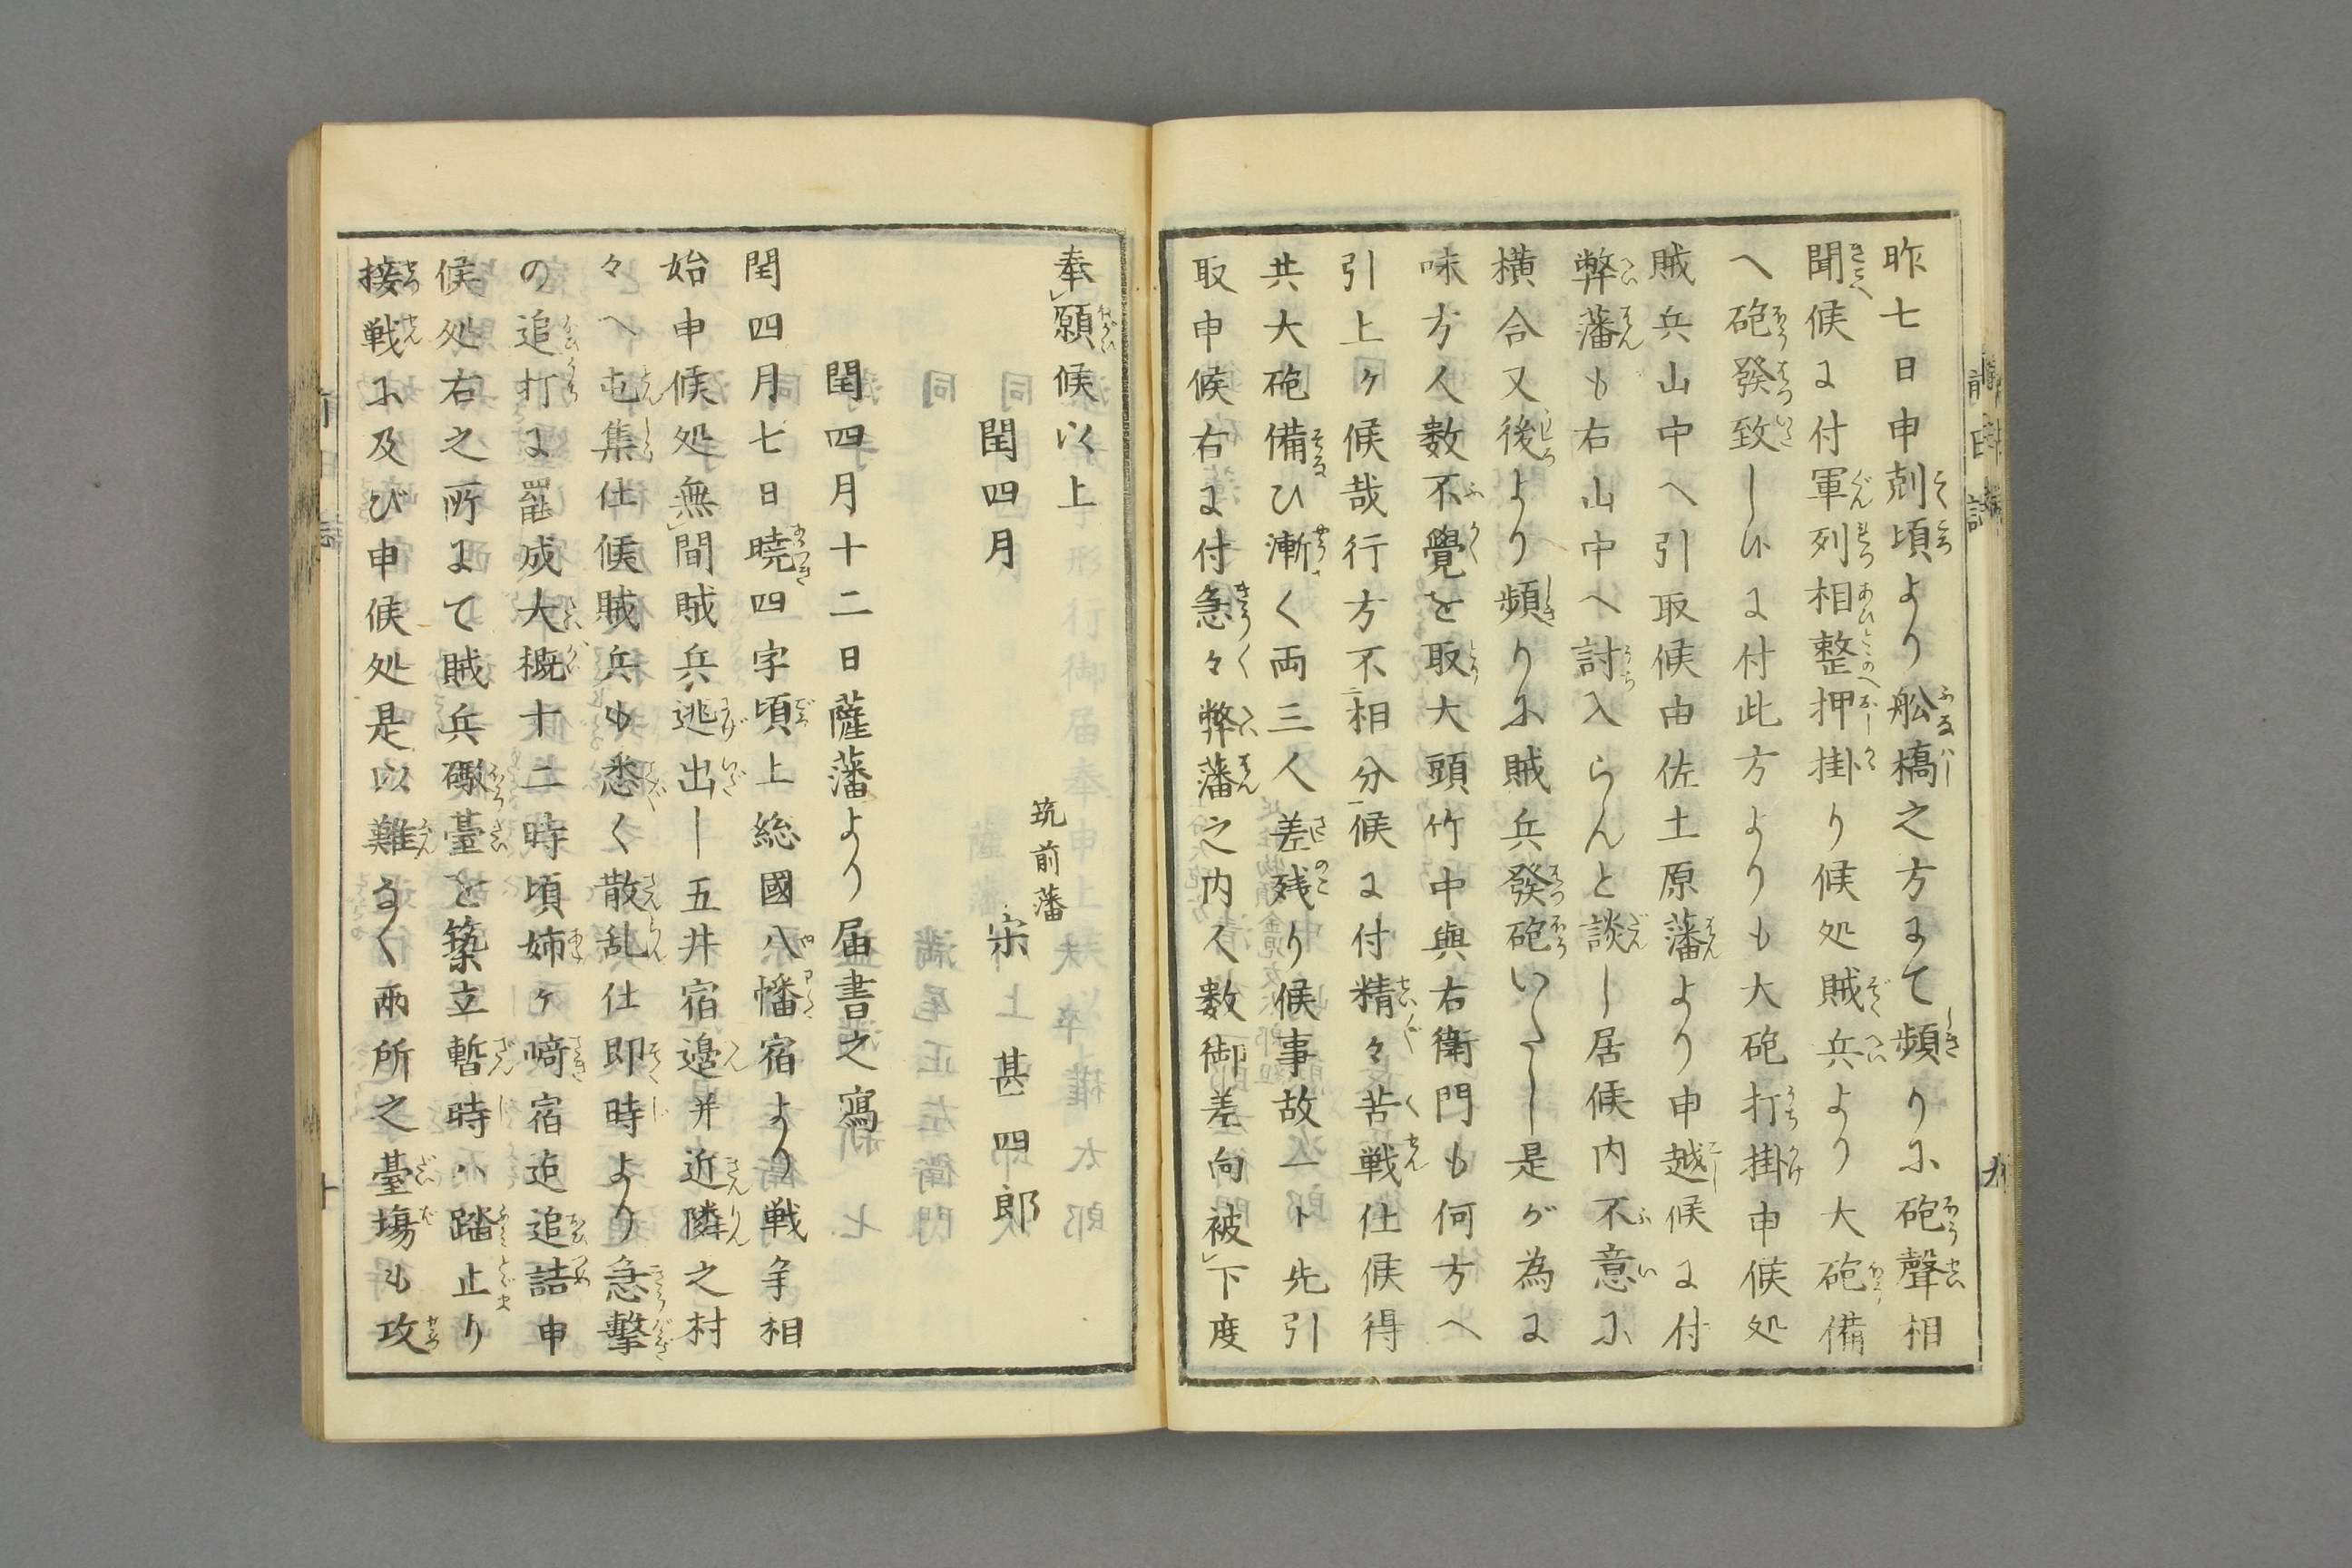 昨七日申剋頃より舩橋之方にて頻りに砲聲相
聞候に付軍列相整押掛り候処賊兵より大砲備
へ砲發致しゐに付此方よりも大砲打掛申候処
賊兵山中へ引取候由佐土原藩より申越候に付
弊藩も右山中へ討入らんと談し居候内不意に
横合又後より頻りに賊兵發砲いたし是が為に
味方人数不覺を取大頭竹中與右衛門も何方へ
引上ヶ候哉行方不相分候に付精々苦戦仕候得
共大砲備ひ漸く両三人差残り候事故一ト先引
取申候右に付急々弊藩之内人数御差向被下度
奉願候以上
閏四月
筑前藩
宋上甚四郎
閏四月十二日薩藩より届書之寫
閏四月七日暁四字頃上総國八幡宿より戦争相
始申候処無間賊兵逃出し五井宿邉并近隣之村
々へ屯集仕候賊兵も悉く散乱仕即時より急撃
の追打に罷成大概十二時頃姉ヶ﨑宿迠追詰申
候処右之所にて賊兵礮臺を築立暫時ハ踏止り
接戦に及び申候処是以難なく兩所之臺塲も攻